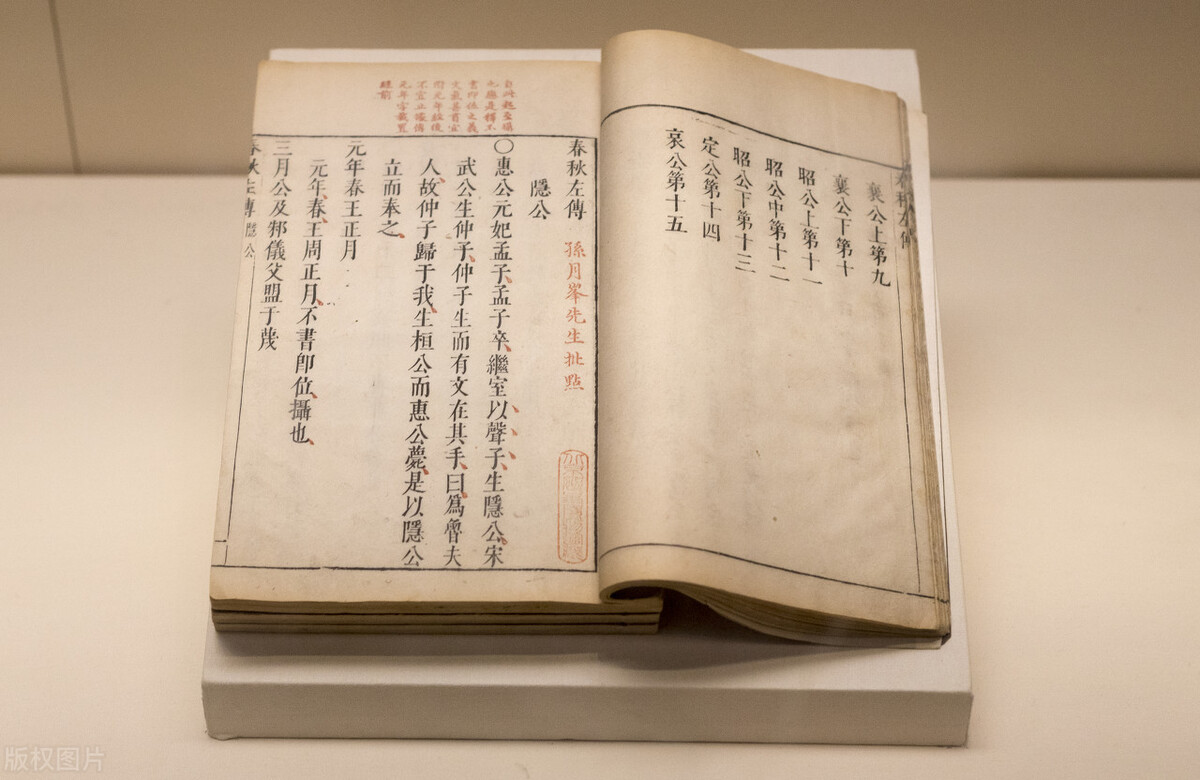 春秋左傳
襄公上第九
襄公下第十
昭公上第十一
昭公中第十二
昭公下第十三
定公第十四
哀公第十五
書即位之義
文氣甚貫宜
附元年經後
不宜止據傳
元年字截置
經前
春秋左傳 孫月峯先生批點
隱公
〇惠公元妃孟子、孟子卒、繼室以聲子、生隱公、宋
武公生仲子、仲子生而有文在其手、曰、爲魯夫
人、故仲子歸于我、生桓公而惠公薨、是以隱公
立而奉之、
元年春王正月
元年、春、王周正月、不書卽位、攝也、
三月公及邾儀父盟于蔑
春秋左傳 隱公
版权图片